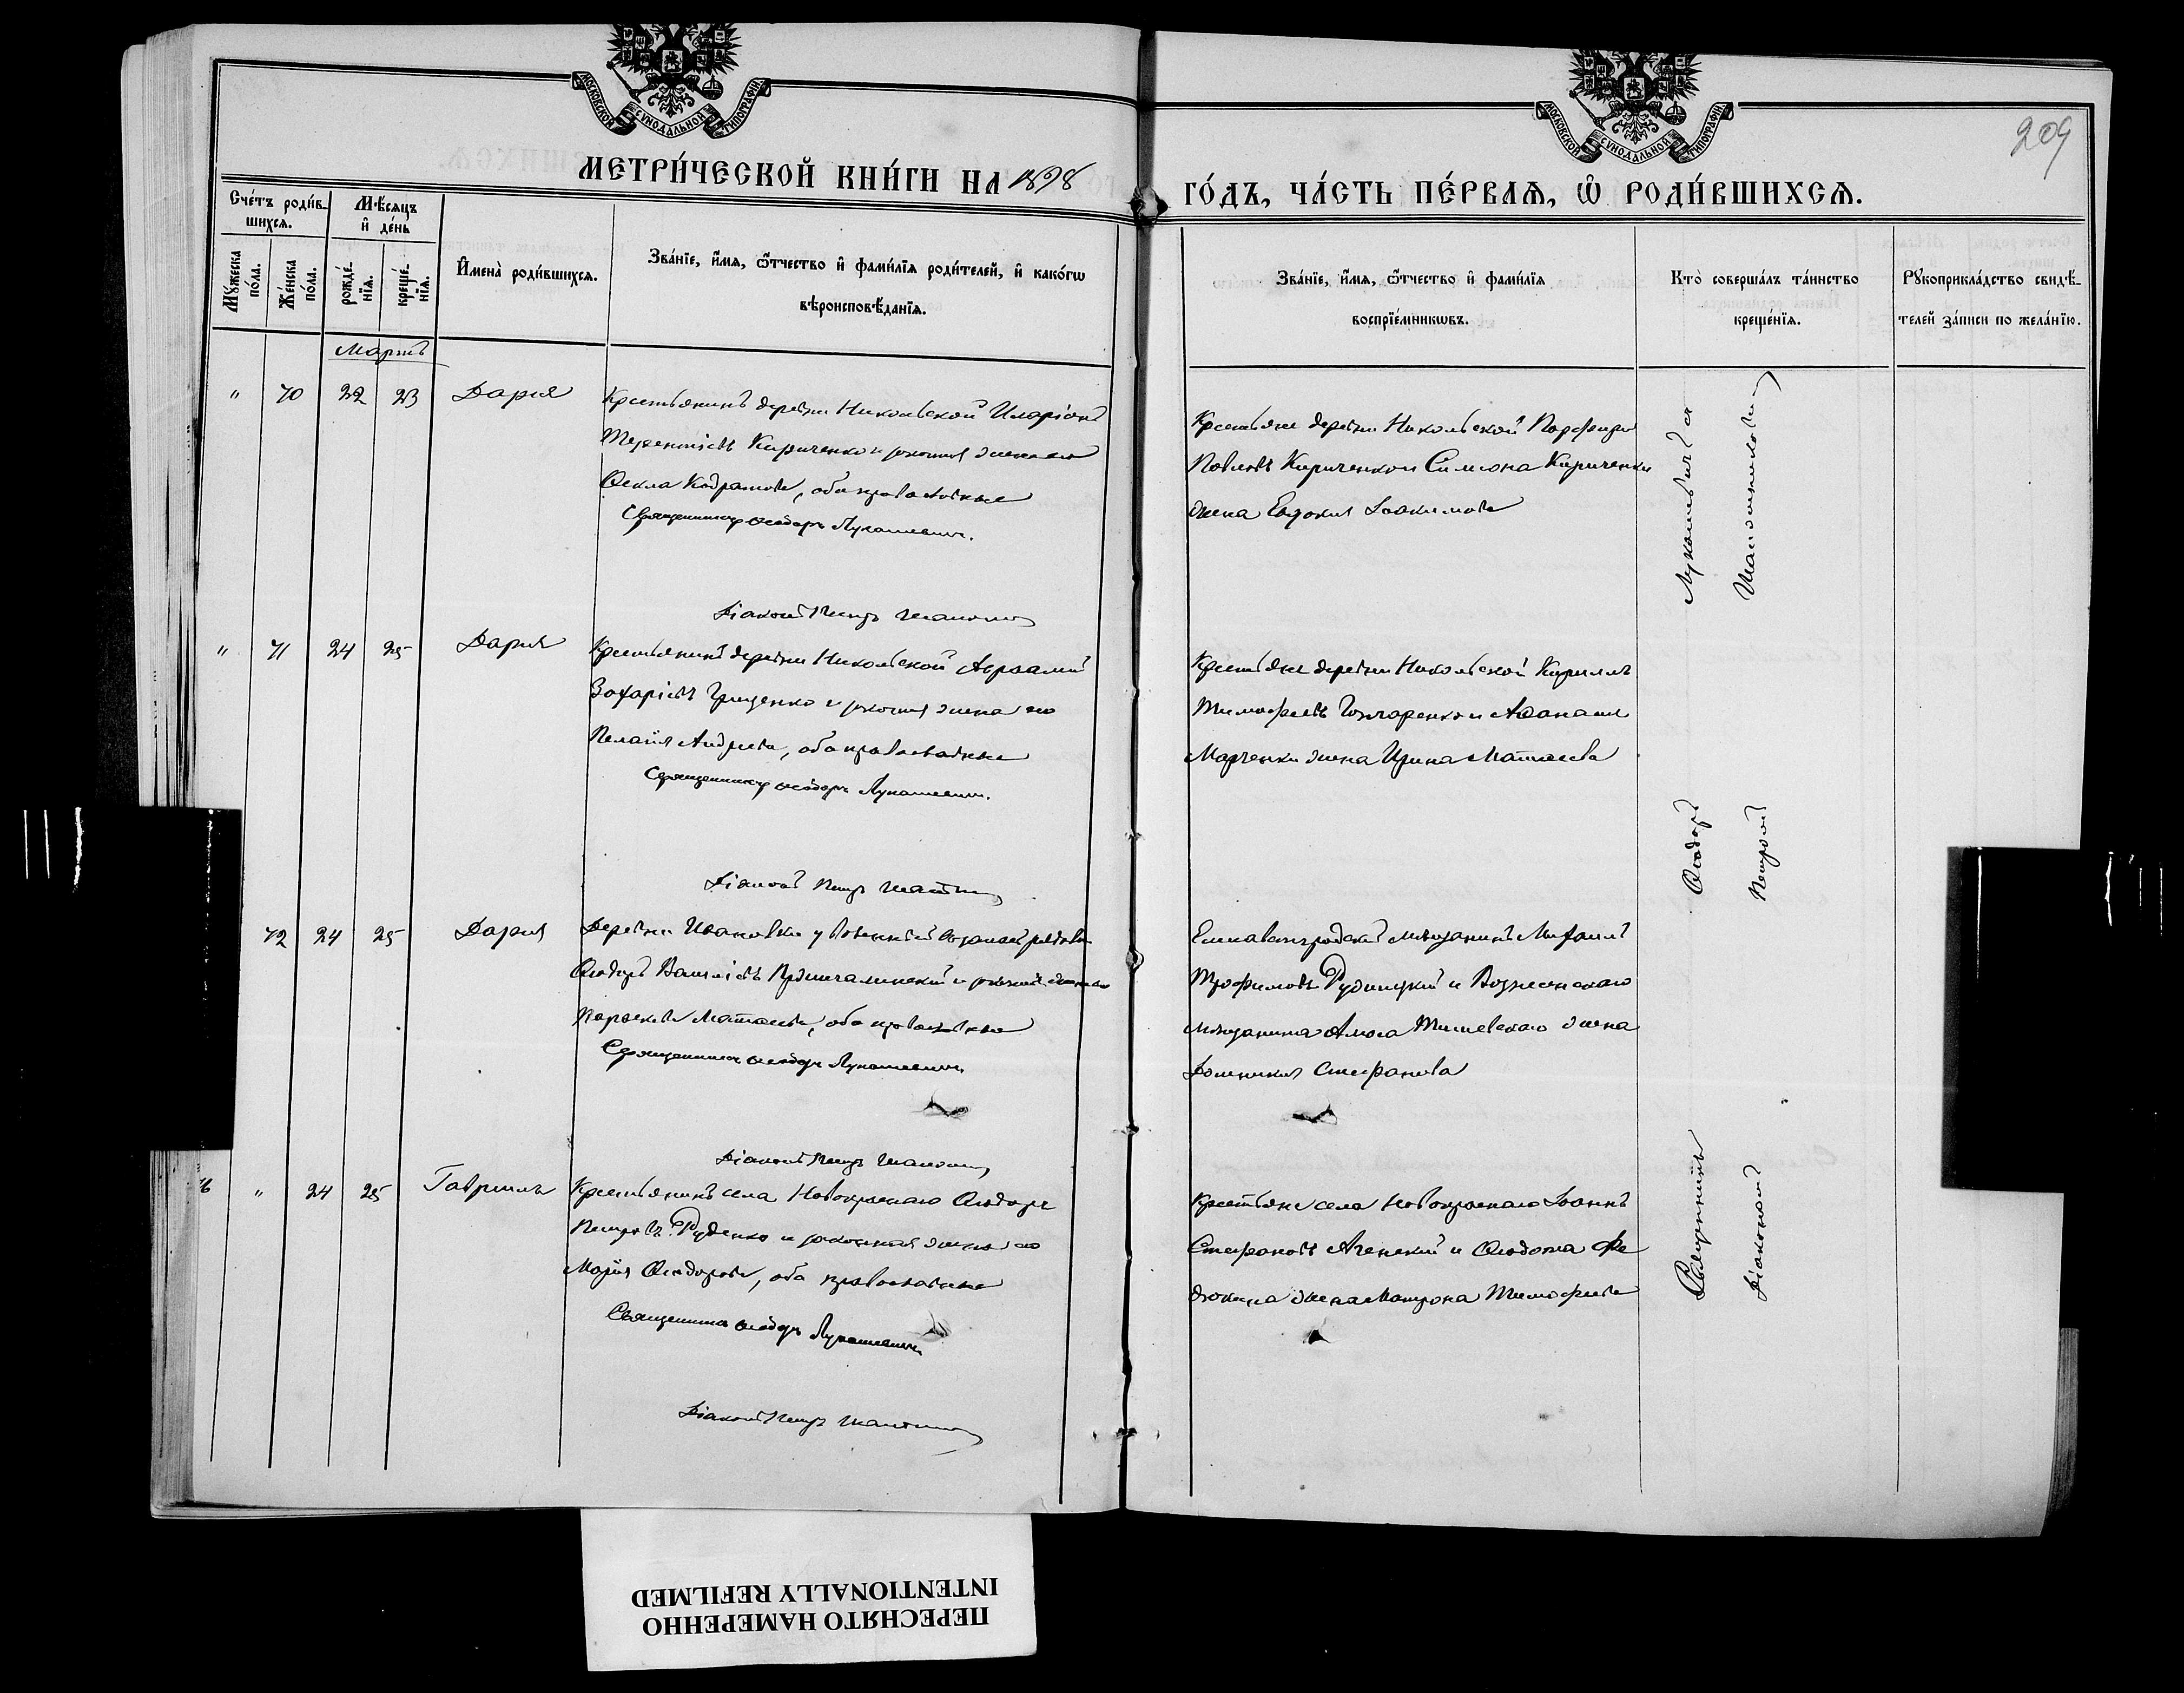 МОСКОВСКОЙ СѴНОДАЛЬНОЙ ТИПОГРАФІИ
МОСКОВСКОЙ СѴНОДАЛЬНОЙ ТИПОГРАФІИ
209
МЕТРИ́ЧЕСКОЙ КНИ́ГИ НА 1898
ГО́ДЪ, ЧА́СТЬ ПЕ́РВАѦ, Ѡ҆ РОДИ́ВШИХСѦ.
Сче́тъ роди́в-
шихсѧ.
Мѣ́сяцъ
и҆ де́нь
Мꙋ́жеска
по́ла.
Же́нска
по́ла.
рожде́-
нїѧ.
креще́-
нїѧ.
И҆мена̀ роди́вшихсѧ.
Зва́нїе, и҆́мѧ, ѻ҆́тчество и҆ фами́лїѧ роди́телей, и҆ како́гѡ
вѣроисповѣ́данїѧ.
Зва́нїе, и҆́мѧ, ѻ҆́тчество и҆ фами́лїѧ
воспрїе́мникѡвъ.
Кто̀ соверша́лъ та́инство
креще́нїѧ.
Рꙋкоприкла́дство свидѣ́-
телей за́писи по жела́нїю.
Мартъ
" 70 22 23 Дарія
Крестьянинъ деревни Никольской Иларіонъ
Терентіевъ Кириченко и законная жена его
Ѳекла Кодратова, оба православные
Священникъ Ѳеодоръ Лукашевичъ.
Діаконъ Петръ
Крестьяне деревни Никольской Порфирій
Павловъ Кириченко и Симеона Кириченки
жена Евдокія Іоакимова
" 71 24 25 Дарія
Крестьянинъ деревни Никольской Авраамій
Захаріевъ Грищенко и законная жена его
Пелагія Андреева, оба православные
Священникъ Ѳеодоръ Лукашевичъ.
Діаконъ Петръ
Крестьяне деревни Никольской Кириллъ
Тимофеевъ Гончаренко и Аѳанасія
Марченки жена Ирина Матѳеева
72 24 25 Дарія
Деревни Ивановки уволенный въ запасъ рядовой
Ѳеодоръ Василіевъ и законная жена его
Параскева Матѳеева, оба православные
Священникъ Ѳеодоръ Лукашевичъ.
Діаконъ Петръ
Елисаветградскій мѣщанинъ Михаилъ
Трофимовъ Рудницкій и Вознесенскаго
мѣщанина Амоса жена
Домникія Стефанова
" 24 25 Гавріилъ
Крестьянинъ села Новокраснаго Ѳеодоръ
Петровъ Руденко и законная жена его
Марія Ѳеодорова, оба православные
Священникъ Ѳеодоръ Лукашевичъ
Діаконъ Петръ
Крестьяне села Новокраснаго Іоаннъ
Стефановъ и Ѳеодота Фе
дюкина жена Матрона Тимофеева
Священникъ Ѳеодоръ Лукашевичъ съ
Діакономъ Петромъ
ПЕРЕСНЯТО НАМЕРЕННО
INTENTIONALLY REFILMED